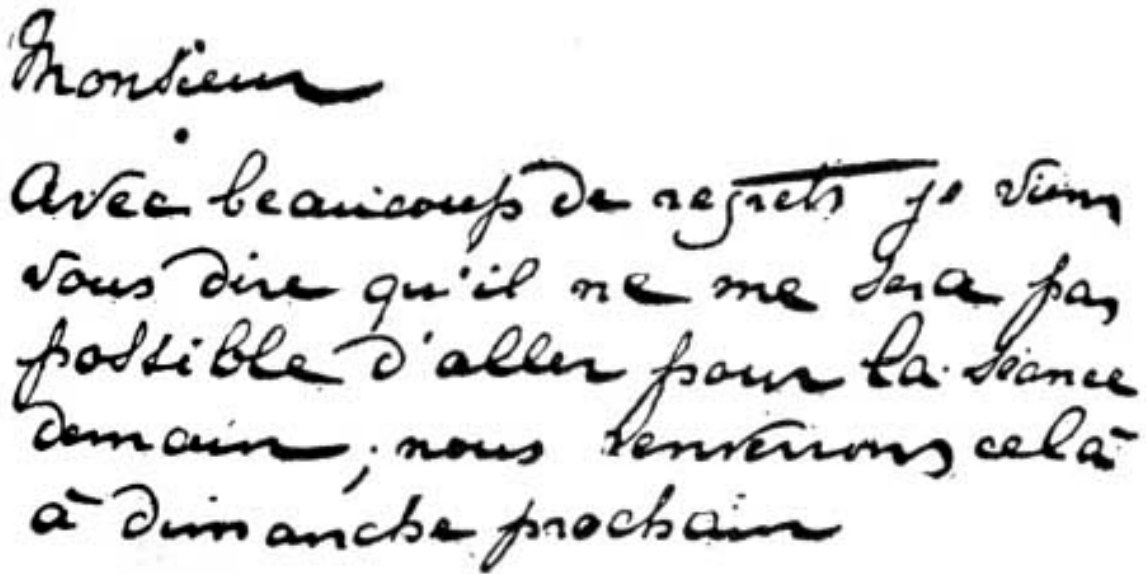 Monsieur
Avec beaucoup de regrets je viens
vous dire qu'il ne me sera pas
possible d'aller pour la séance
demain, nous renverrons celà
à dimanche prochain